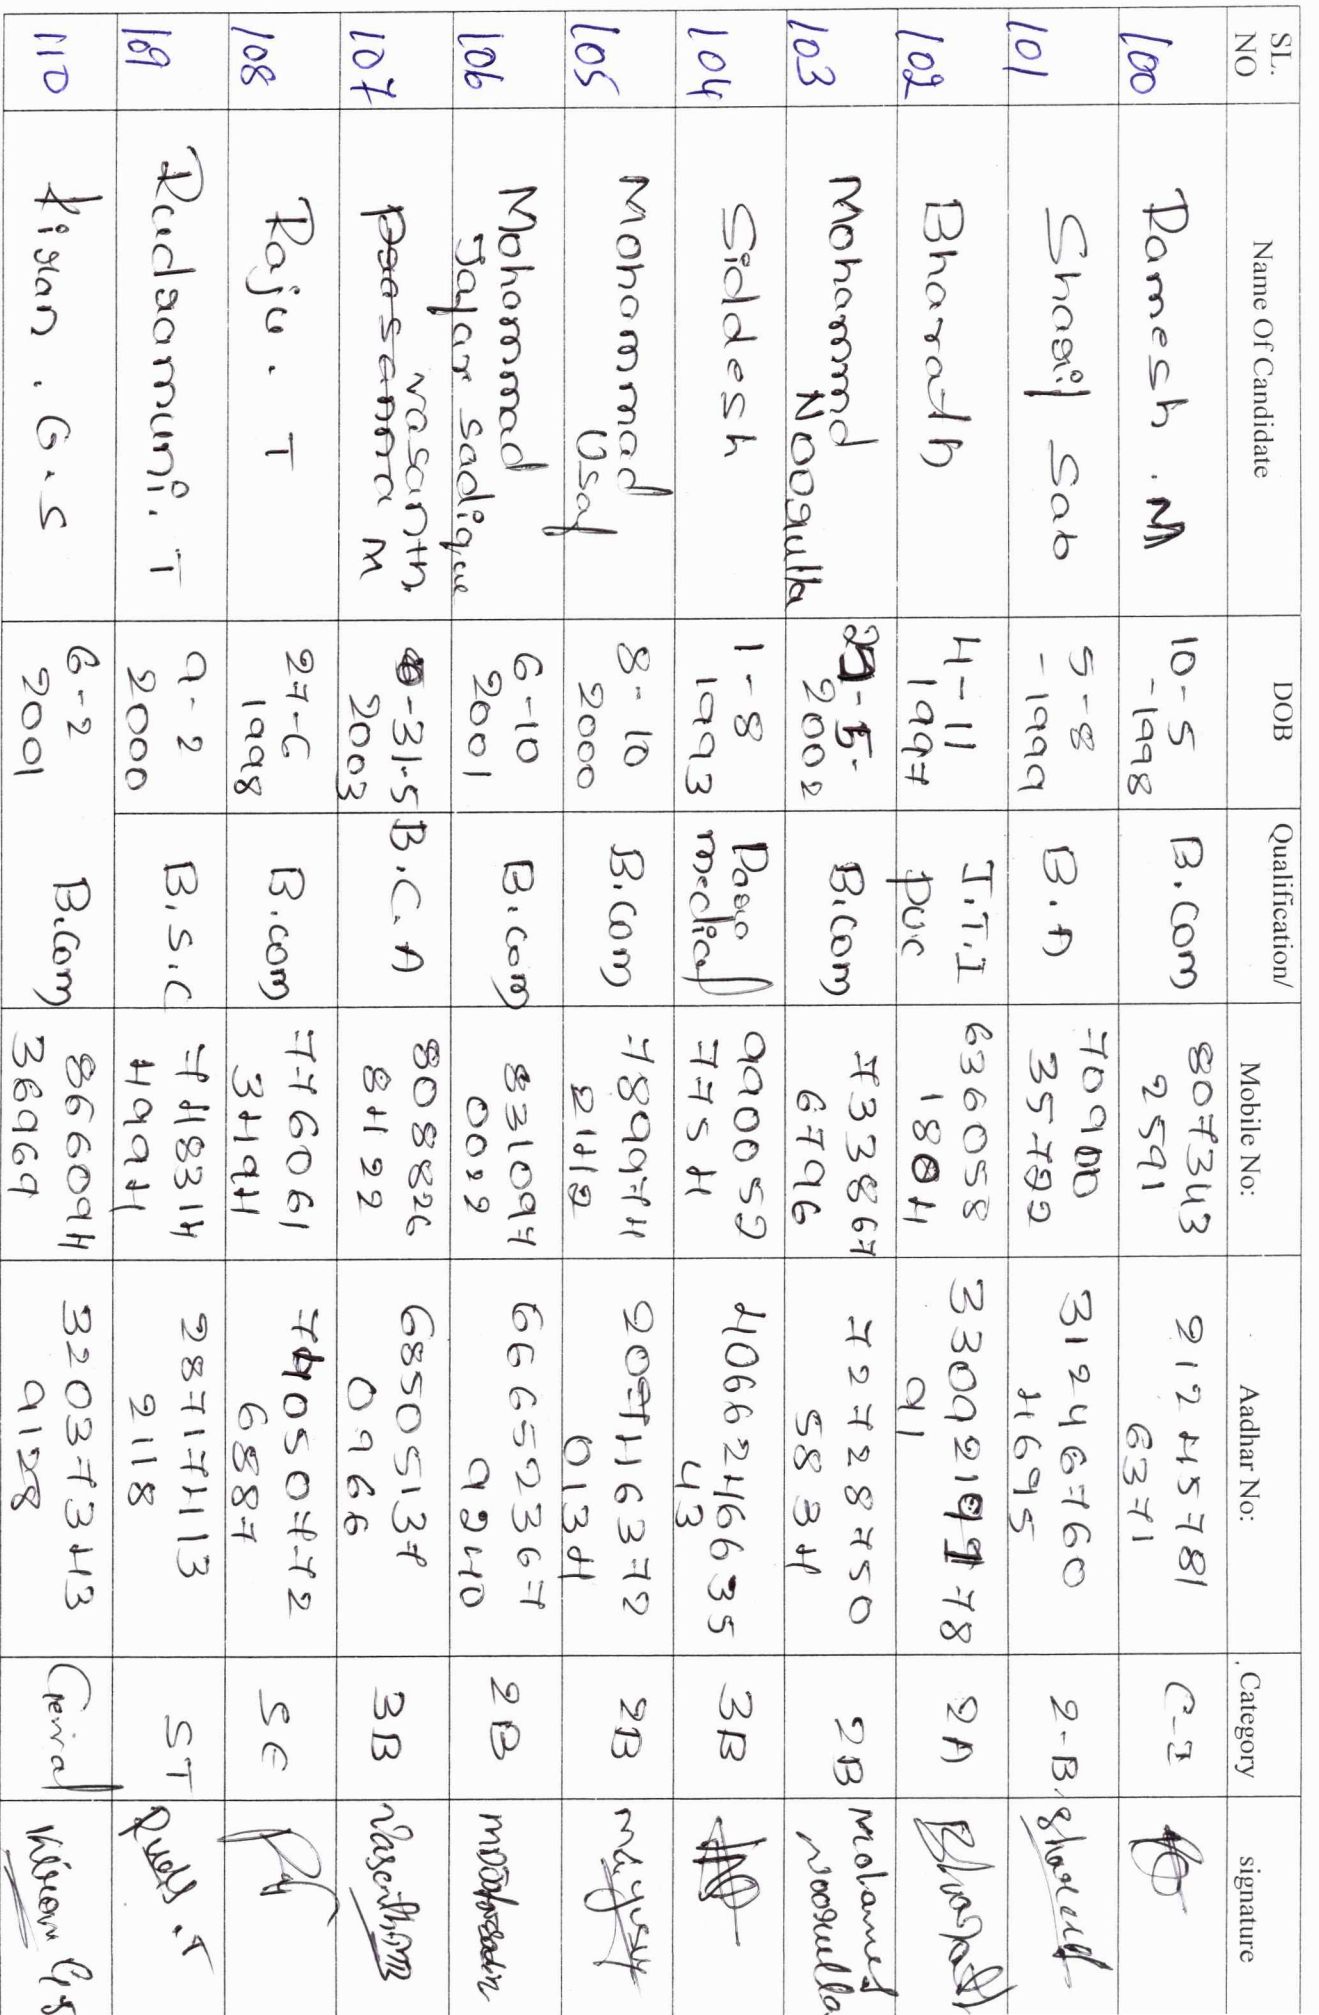 SL. NO Name Of Candidate DOB Qualification/ Mobile No: Aadhar No: Category signature
100 Ramesh . M 10-5 -1998 B.com 807343 2591 21245781 6371 C-I
101 Shagil Sab 5-8 -1999 B.A 70900 35722 31246760 4695 2-B
102 Bharath 4-11 1997 I.T.I PUC 636058 1804 91 2A Bharath
103 Mohammd Noorulla 5- 2002 B.com 733867 6796 72728750 5834 2B Mohamed Noorulla
104 Siddesh 1-8 1993 Para medical 990052 7754 4066246635 43 3B
105 Mohammad Usaf 8-10 2000 B.com 789974 2412 2074116372 0134 2B
106 Mohammad Jafar sadique 6-10 2001 B.com 831097 0022 66652367 9240 2B
107 vasanth M 31-5 2003 B.C.A 808826 84122 68505137 0966 3B Vasanth M
108 Raju . T 27-6 1998 B.com 776061 34194 6887 SC
109 Rudramuni. T 9-2 2000 B.S.C 748314 4994 28717413 2118 ST Rudr.T
110 Kiran . G.S 6-2 2001 B.com 866094 36969 32037343 9128 General Kiran G S